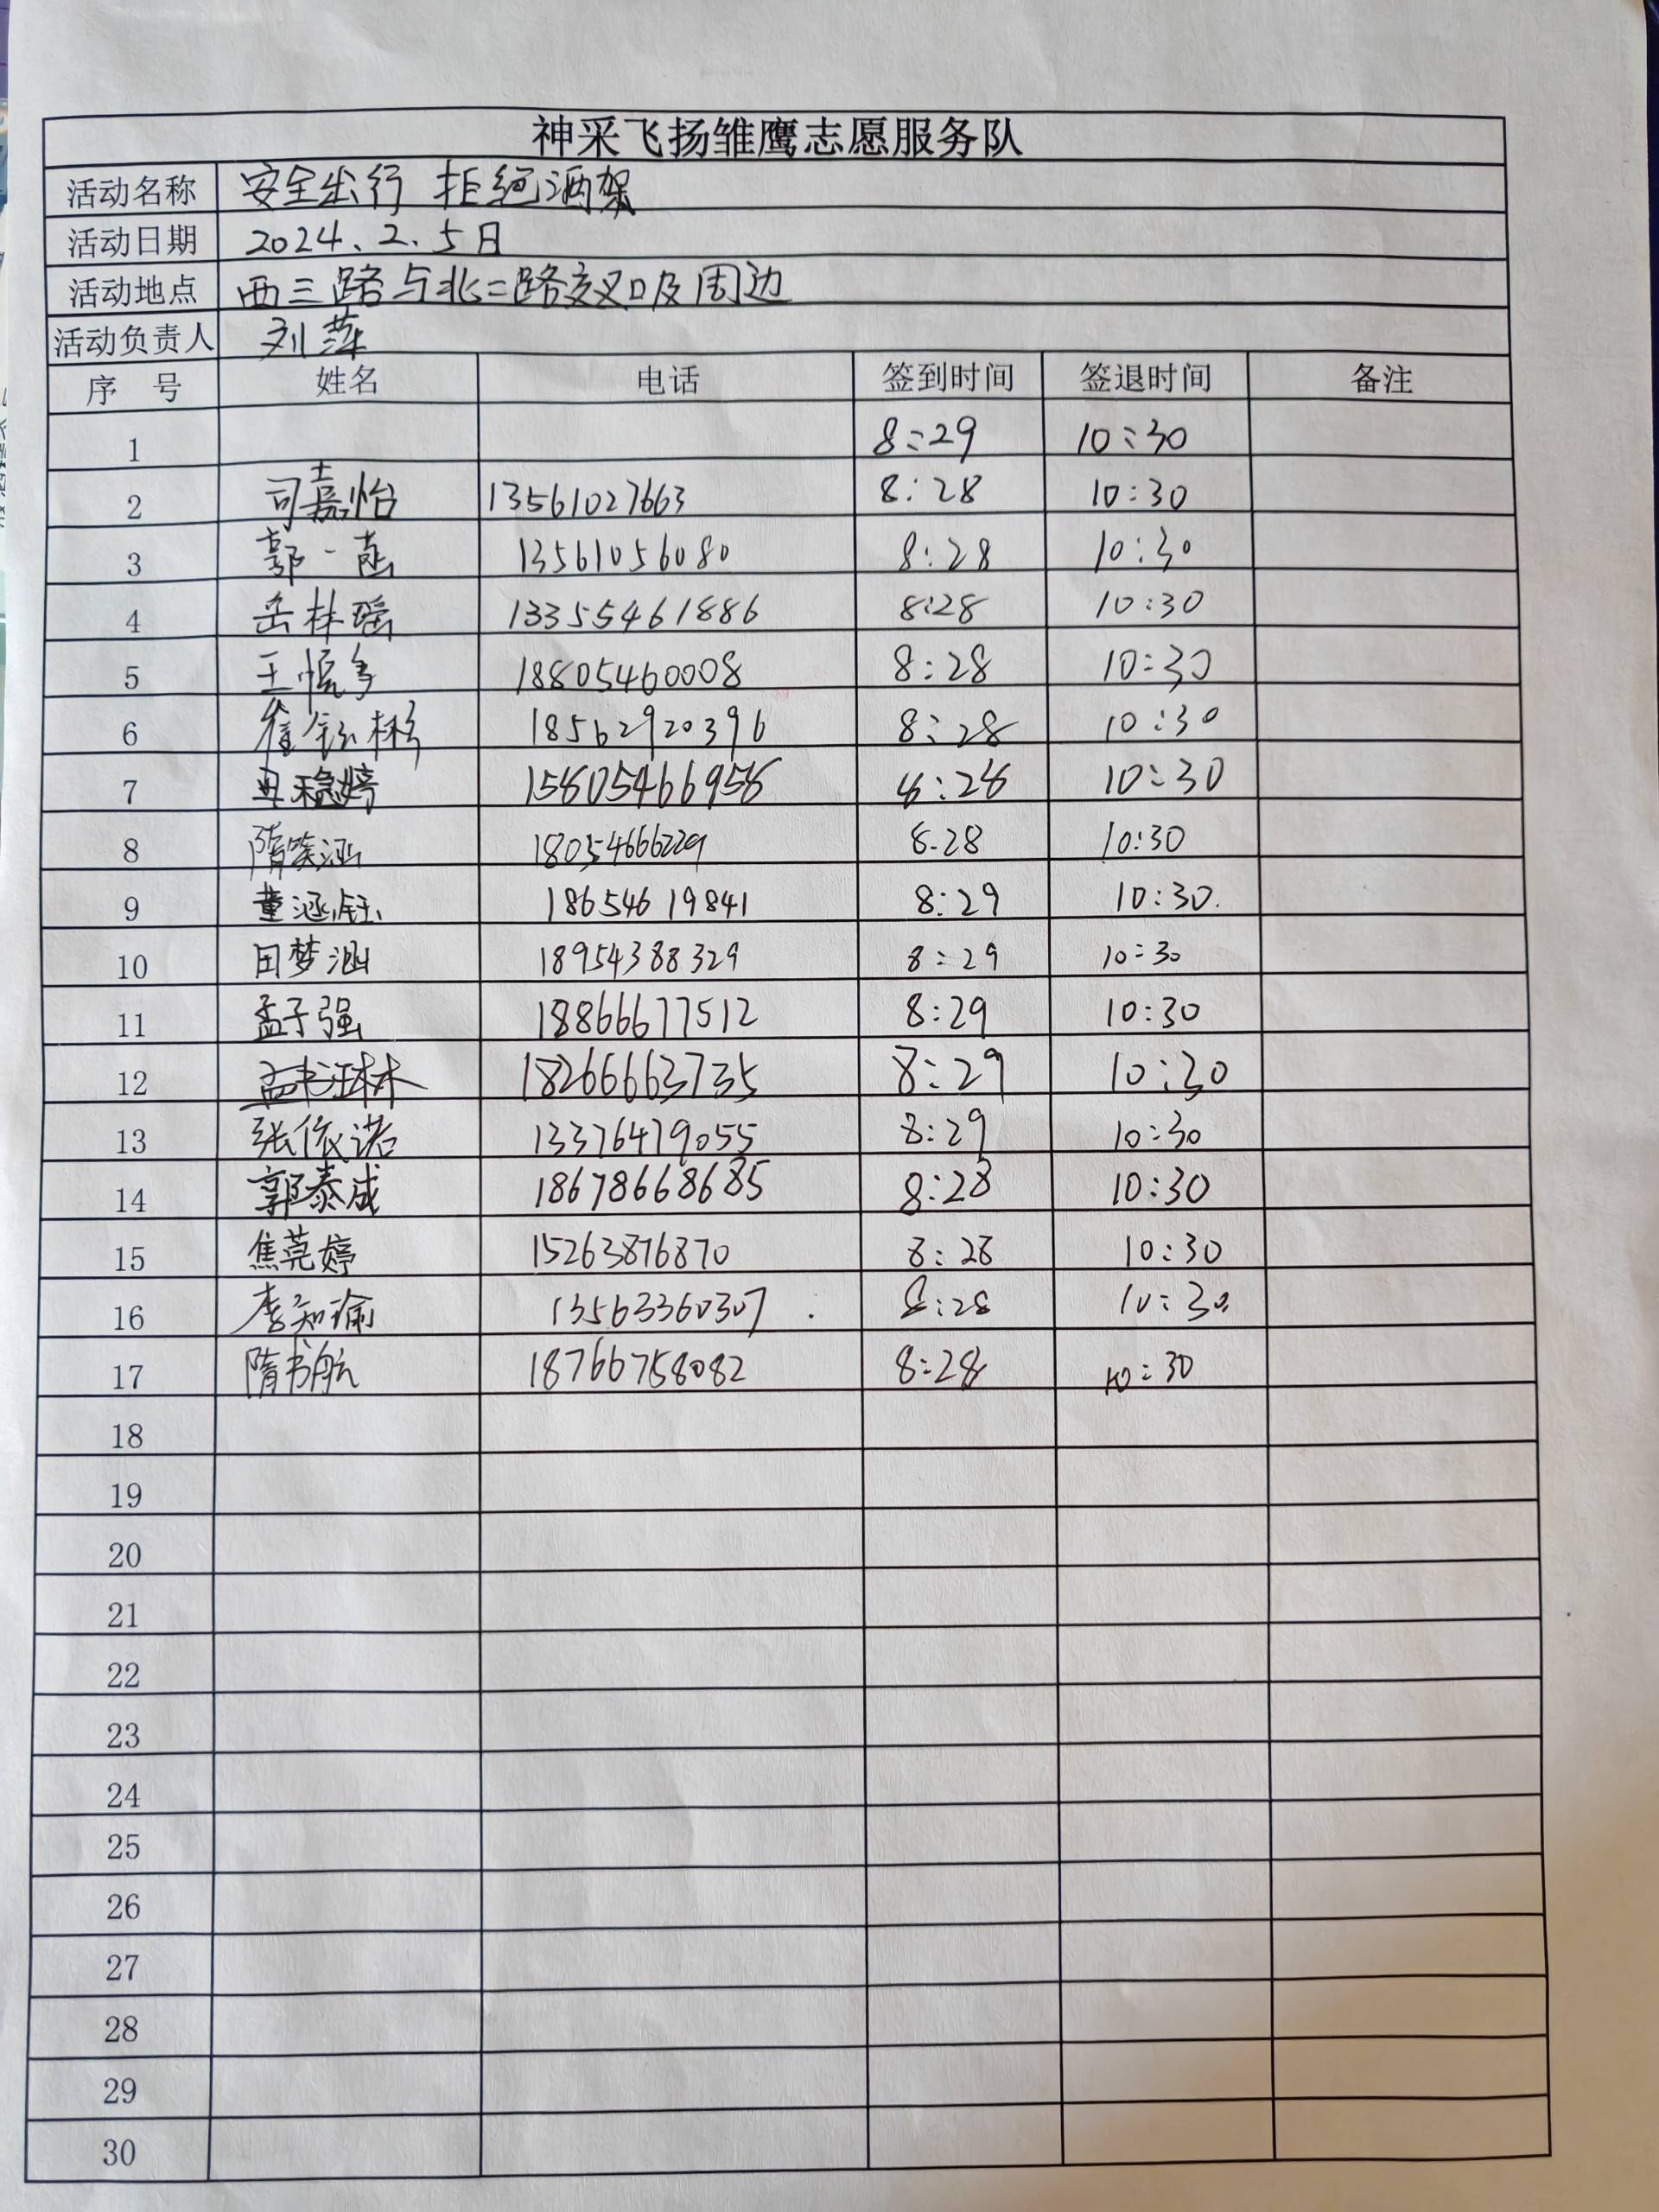 神采飞扬雏鹰志愿服务队
活动名称 安全出行 拒绝酒驾
活动日期 2024.2.5日
活动地点 西三路与北二路交叉口及周边
活动负责人 刘萍
序 号 姓名 电话 签到时间 签退时间 备注
1 8:29 10:30
2 司嘉怡 13561027663 8:28 10:30
3 郭一菡 13561056080 8:28 10:30
4 岳林瑶 13355461886 8:28 10:30
5 18805460008 8:28 10:30
6 18562920396 8:28 10:30
7 15805466958 8:28 10:30
8 隋笑涵 18054666229 8:28 10:30
9 董涵钰 18654619841 8:29 10:30
10 田梦涵 18954388329 8:29 10:30
11 孟子强 18866677512 8:29 10:30
12 18266663735 8:29 10:30
13 张依诺 13376479055 8:29 10:30
14 郭泰成 18678668685 8:28 10:30
15 焦莞婷 15263876870 8:28 10:30
16 李知瑜 13563360307 8:28 10:30
17 隋书航 18766758082 8:28 10:30
18
19
20
21
22
23
24
25
26
27
28
29
30